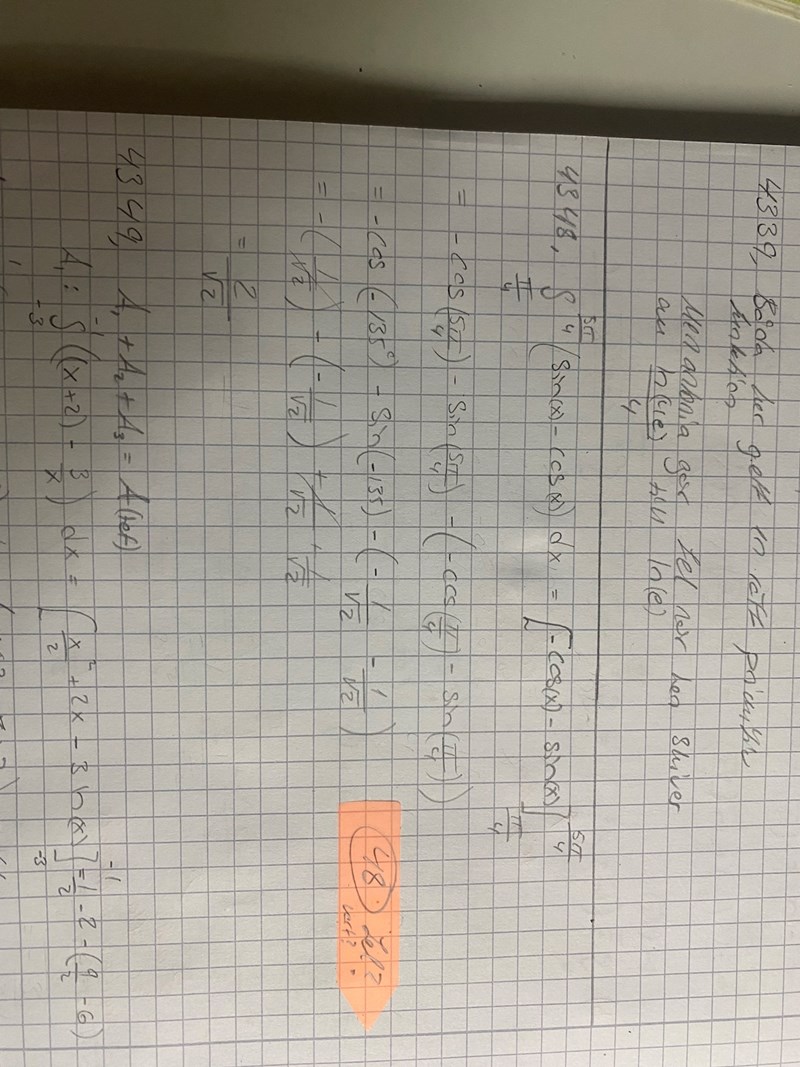 4339, Båda har gett en rätt primitiv
funktion
Men antonia gör fel när hon skriver
om ln(4e)/4 till ln(e)
4348, ∫_{π/4}^{5π/4} (sin(x) - cos(x)) dx = [-cos(x) - sin(x)]_{π/4}^{5π/4}
= -cos(5π/4) - sin(5π/4) - (-cos(π/4) - sin(π/4))
= -cos(-135°) - sin(-135) - (-1/√2 - 1/√2)
= -(1/√2) - (-1/√2) + 1/√2 + 1/√2
= 2/√2
48. Fel?
vart?
4349, A₁ + A₂ + A₃ = A(tot)
A₁: ∫_{-3}^{-1} ((x+2) - 3/x) dx = [x²/2 + 2x - 3 ln(x)]_{-3}^{-1} = 1/2 - 2 - (9/2 - 6)